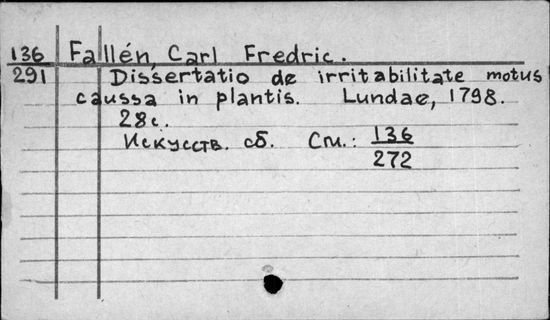 136 Fallén, Carl Fredric.
291 Dissertatio de irritabilitate motus
caussa in plantis. Lundae, 1798.
28с.
Искусств. сб. См.: 136
272